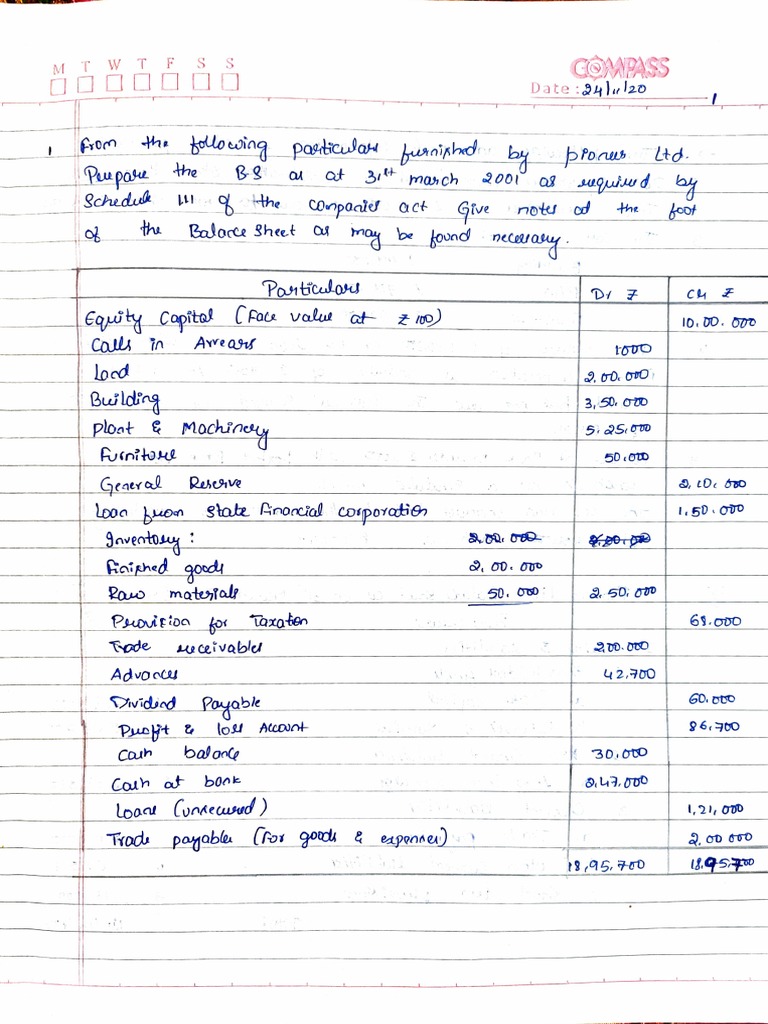 M T W T F S S
COMPASS
Date: 24/11/20
1
1 From the following particulars furnished by pioneer Ltd.
Prepare the B.S as at 31st march 2001 as required by
Schedule III of the companies act Give notes at the foot
of the Balance Sheet as may be found necessary.
Particulars Dr ₹ Cr ₹
Equity Capital (Face value at ₹100) 10.00.000
Calls in Arrears 1000
Land 2,00.000
Building 3,50.000
Plant & Machinery 5.25.000
Furniture 50.000
General Reserve 2,10,000
Loan from state financial corporation 1,50.000
Inventory: 2.00.000 2,00,000
Finished goods 2.00.000
Raw materials 50.000 2.50.000
Provision for Taxation 68.000
Trade receivables 2,00.000
Advances 42,700
Dividend Payable 60.000
Profit & loss Account 86,700
Cash balance 30,000
Cash at bank 2,47,000
Loans (unsecured) 1,21,000
Trade payables (For goods & expenses) 2,00 000
18,95,700 18,95,700